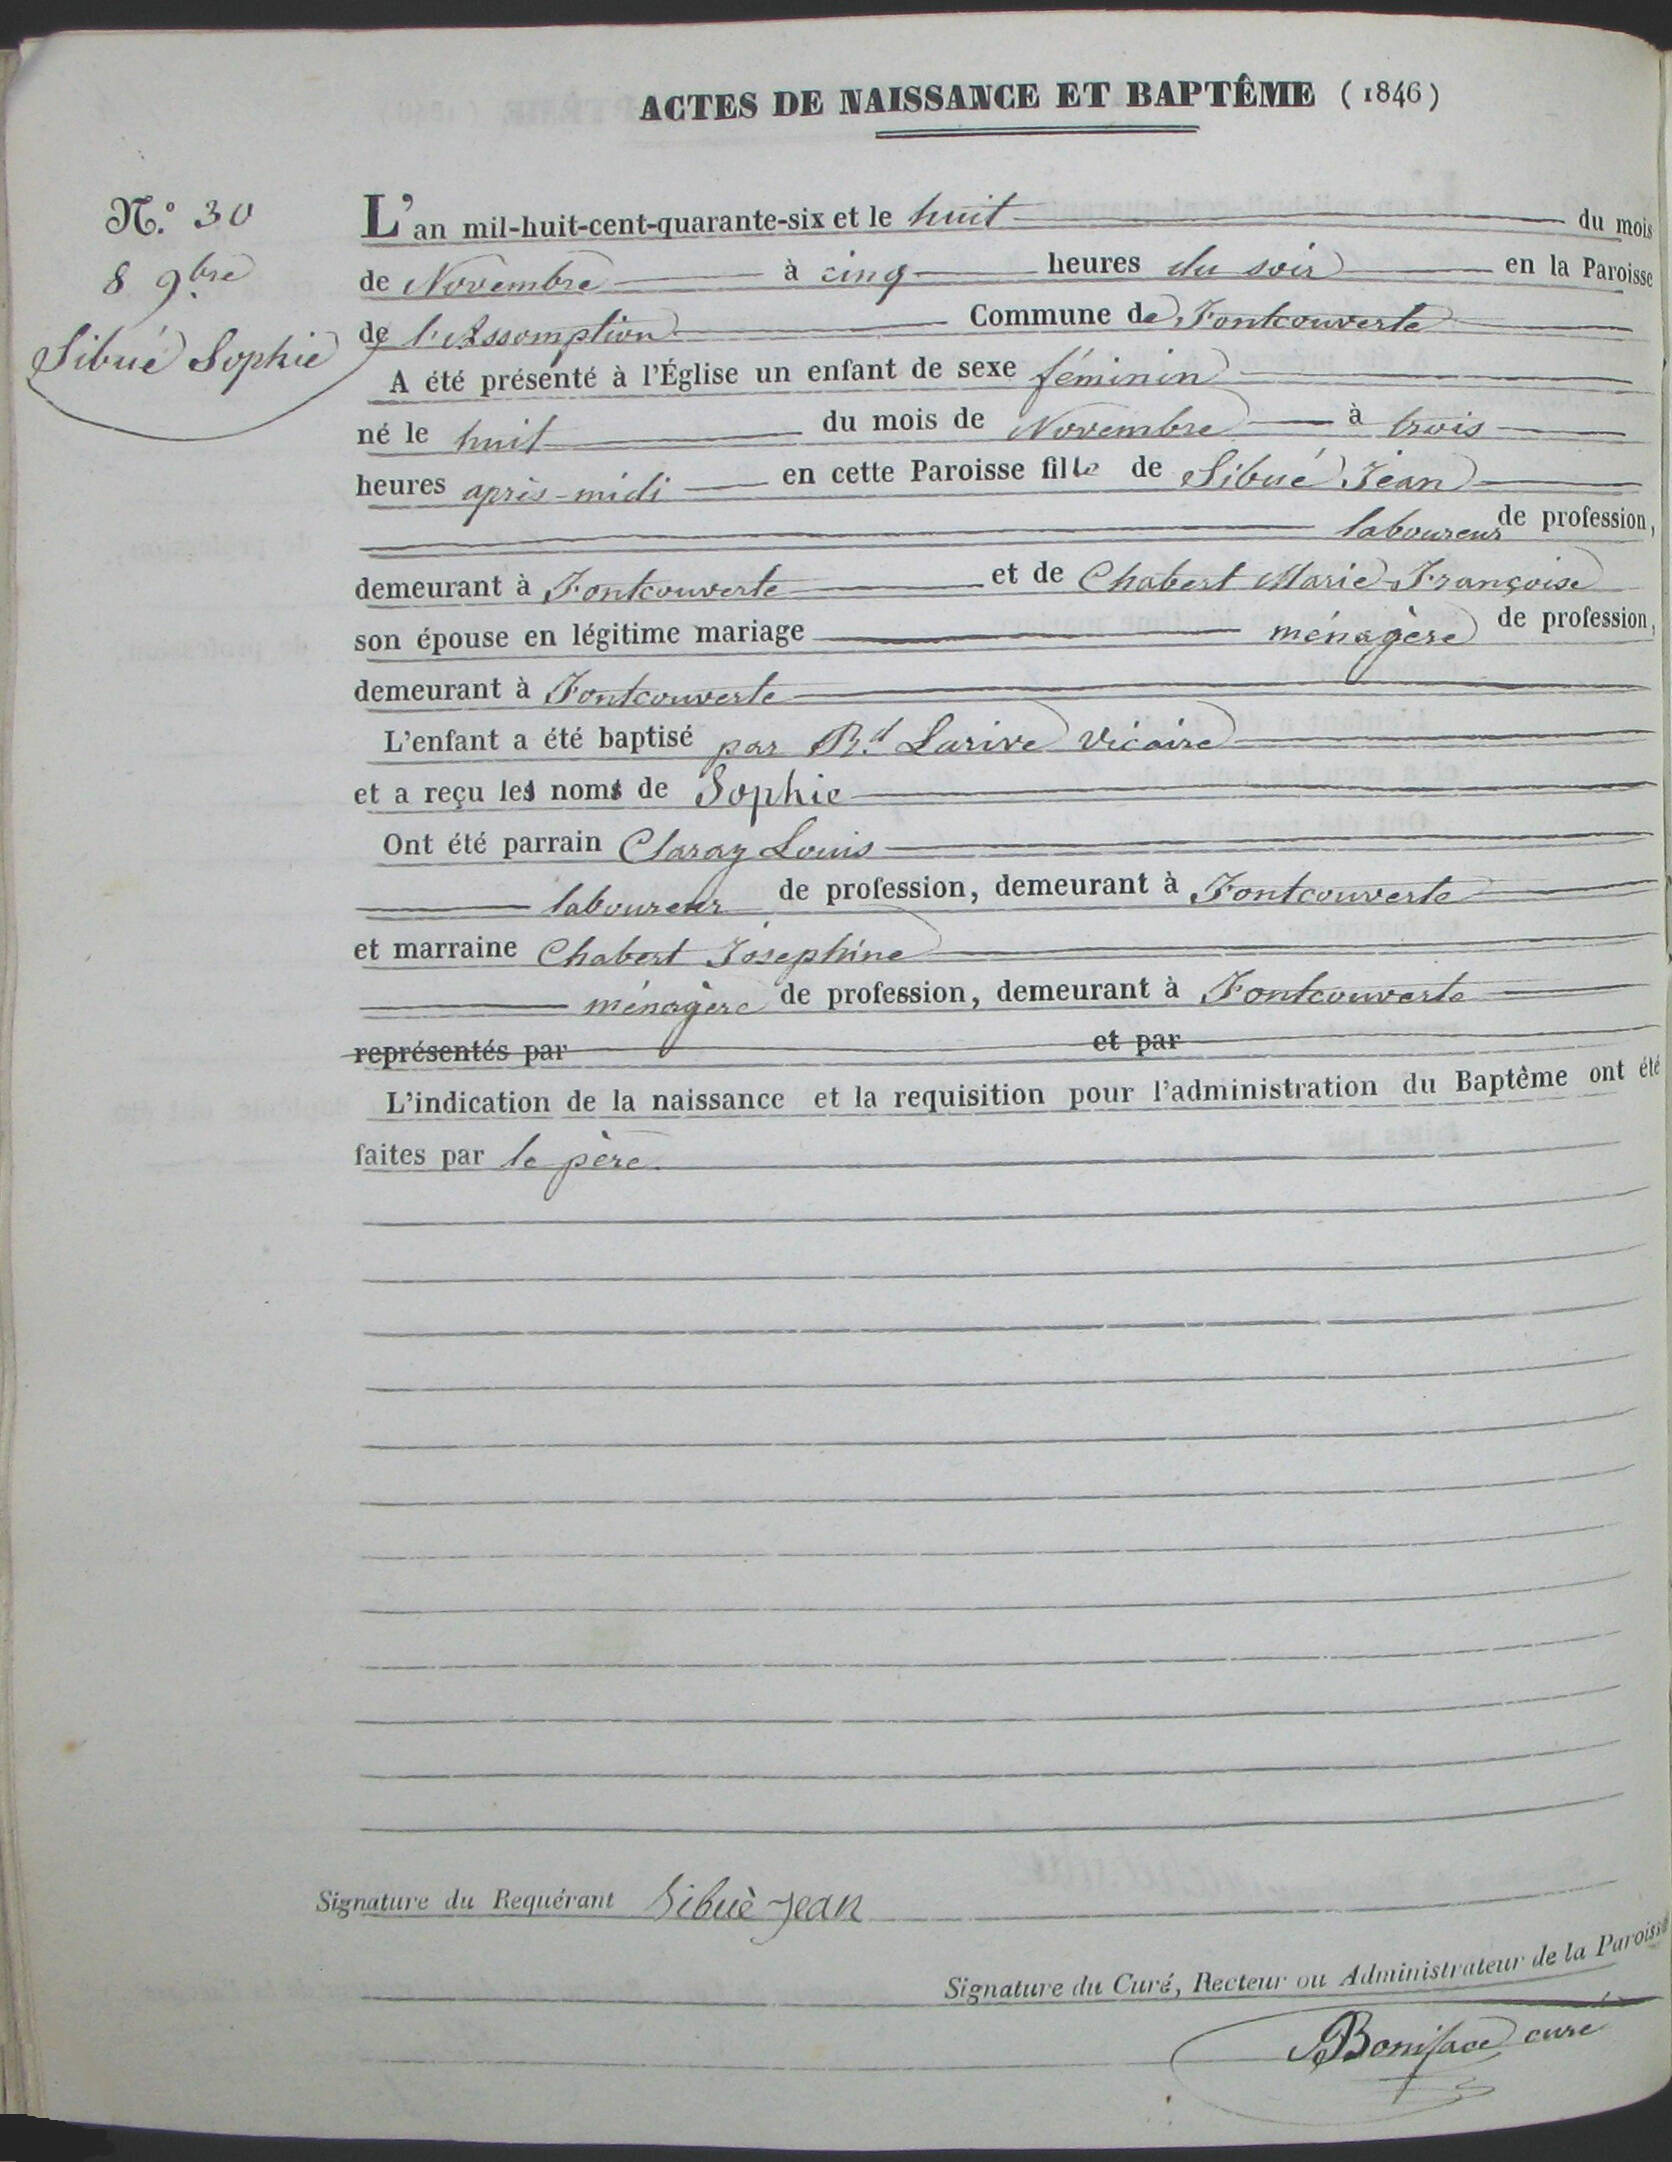 ACTES DE NAISSANCE ET BAPTÊME (1846)
N.º 30
8 9.bre
Sibué Sophie
L'an mil-huit-cent-quarante-six et le huit du mois
de Novembre à cinq heures du soir en la Paroisse
de l'Assomption Commune de Fontcouverte
A été présenté à l'Église un enfant de sexe féminin
né le huit du mois de Novembre à trois
heures après-midi en cette Paroisse fille de Sibué Jean
laboureur de profession,
demeurant à Fontcouverte et de Chabert Marie-Françoise
son épouse en légitime mariage ménagère de profession,
demeurant à Fontcouverte
L'enfant a été baptisé par R.d Larive Vicaire
et a reçu les noms de Sophie
Ont été parrain Claraz Louis
laboureur de profession, demeurant à Fontcouverte
et marraine Chabert Josephine
ménagère de profession, demeurant à Fontcouverte
représentés par et par
L'indication de la naissance et la requisition pour l'administration du Baptême ont été
faites par le père.
Signature du Requérant Sibuè jean
Signature du Curé, Recteur ou Administrateur de la Paroisse
Boniface curé